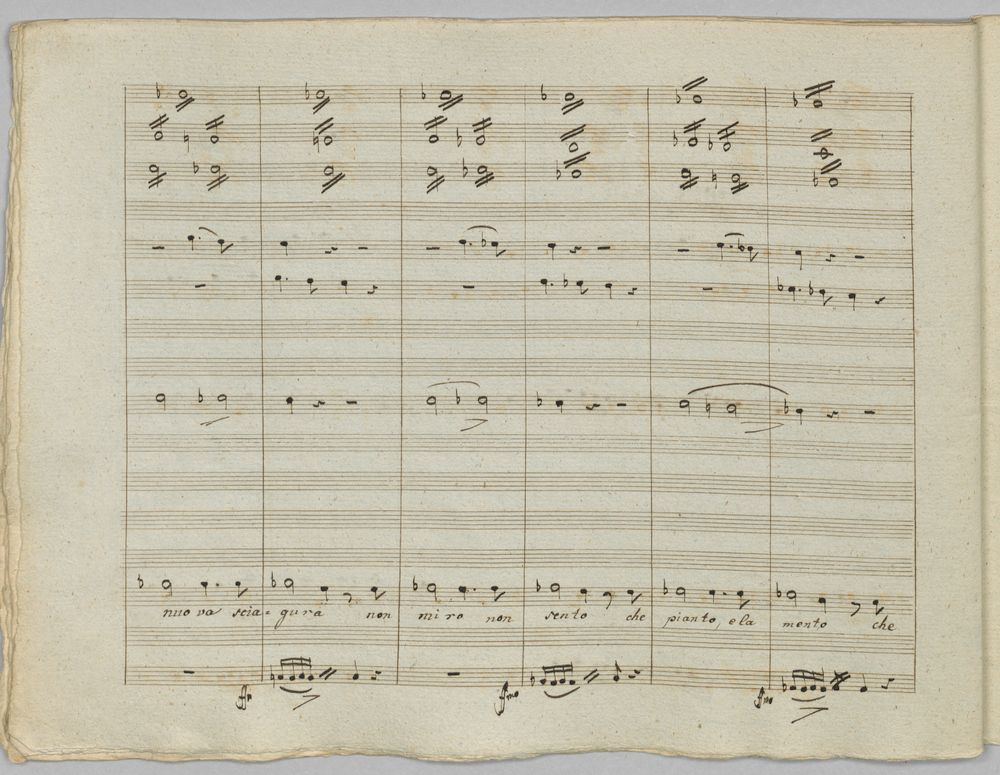 nuova scia = gura non miro non sento che pianto, e la mento che
fmo fmo